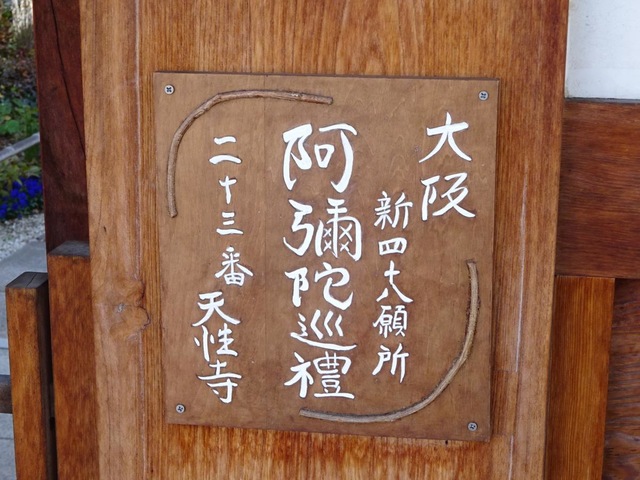 大阪
新四十八願所
阿彌陀巡禮
二十三番 天性寺